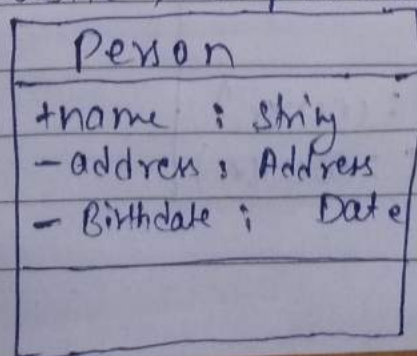 Person
+name : string
-address : Address
- Birthdate : Date